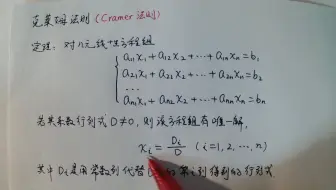 克莱姆法则(Cramer法则)
定理:对n元线性方程组
a₁₁x₁+a₁₂x₂+⋯+a₁ₙxₙ=b₁
a₂₁x₁+a₂₂x₂+⋯+a₂ₙxₙ=b₂
⋯
aₙ₁x₁+aₙ₂x₂+⋯+aₙₙxₙ=bₙ
若其系数行列式D≠0,则该方程组有唯一解,
xᵢ=Dᵢ/D (i=1,2,⋯,n)
其中Dᵢ是用常数列代替 的第i列得到的行列式